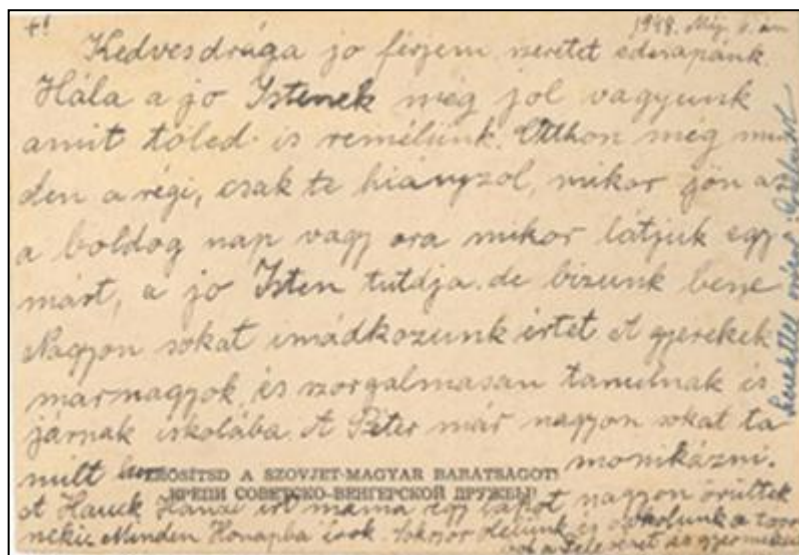 +! 1948. Máj. 6.án
Kedvesdrága jo férjem szeretet édesapánk.
Hála a jo Istenek még jol vagyunk
amit tőled is remélünk. Otthon még min
den a régi, csak te hiányzol, mikor jön az
a boldog nap vagy ora mikor látjuk egy
mást, a jo Isten tutdja de bizunk bene
Nagyon sokat imádkozunk értet A gyerekek
marnagyok és szorgalmasan tanulnak is
járnak iskolába. A Péter már nagyon sokat ta
nult monikázni.
ERŐSÍTSD A SZOVJET-MAGYAR BARÁTSÁGOT!
КРЕПИ СОВЕТСКО-ВЕНГЕРСКОЙ ДРУЖБЫ!
A Hauck irt máma egy lapot nagyon örültek
nekie Minden Honapba irok. Sokszor ölelünk és csokolunk a
a feleséged és gyermekeid